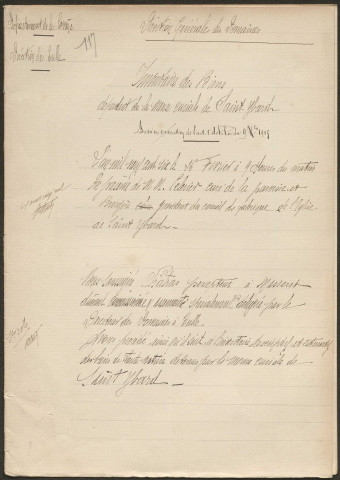 Département de la Corrèze
Direction Générale des Domaines
Direction de Tulle
117
Inventaire des Biens
dépendant de la mense curiale de Saint Ybard
Dressé en exécution de l'art. 3 de la loi du 9 Xbre 1905
L'an mil neuf cent six le 15 Février à 9 heures du matin
En présence de M.M. curé de la paroisse et
président du conseil de fabrique de l'Eglise
de Saint Ybard
Nous soussigné percepteur à Masseret
dûment commissionné et assermenté spécialement délégué par le
Directeur des Domaines à Tulle
avons procédé ainsi qu'il suit à l'inventaire descriptif et estimatif
des biens de toute nature détenus par la mense curiale de
Saint Ybard